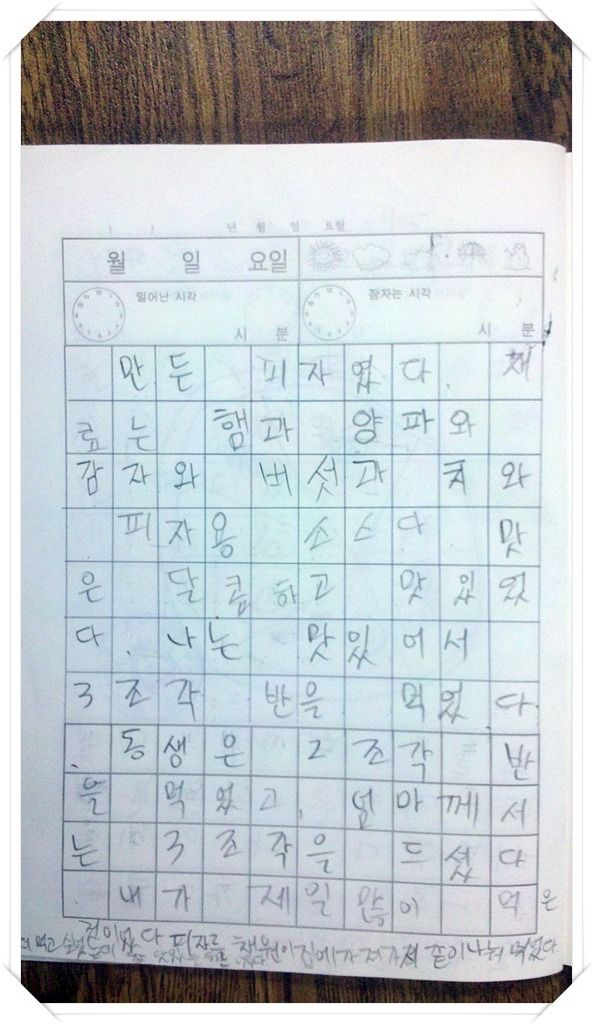 ( ) 년 월 일 요일
월 일 요일
일어난 시각 잠자는 시각
시 분 시 분
만든 피자였다. 재
료는 햄과 양파와
감자와 버섯과 치와
피자용 소스다 맛
은 달콤하고 맛있었
다. 나는 맛있어서
3조각 반을 먹었다
. 동생은 2조각 반
을 먹었고, 엄마께서
는 3조각을 드셨다
. 내가 제일 많이 먹은
것이었다 피자를 채원이집에 가져가서 같이 나눠 먹었다.
더 먹고